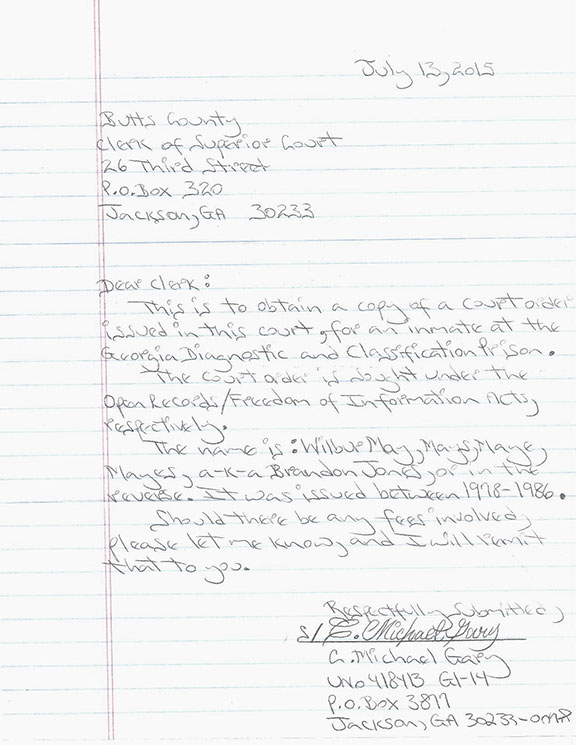 July 13, 2015
Butts County
Clerk of Superior Court
26 Third Street
P.O. Box 320
Jackson, GA 30233
Dear Clerk:
This is to obtain a copy of a court order
issued in this court, for an inmate at the
Georgia Diagnostic and Classification Prison.
The court order is sought under the
Open Records/Freedom of Information Acts,
respectively.
The name is: Wilbur May, Mays, Maye,
Mayes, a-k-a Brandon Jones, or in the
reverse. It was issued between 1978-1986.
Should there be any fees involved,
please let me know, and I will remit
that to you.
Respectfully Submitted,
s/ C. Michael Gary
C. Michael Gary
UNO 418413 G1-14
P.O. Box 3877
Jackson, GA 30233-